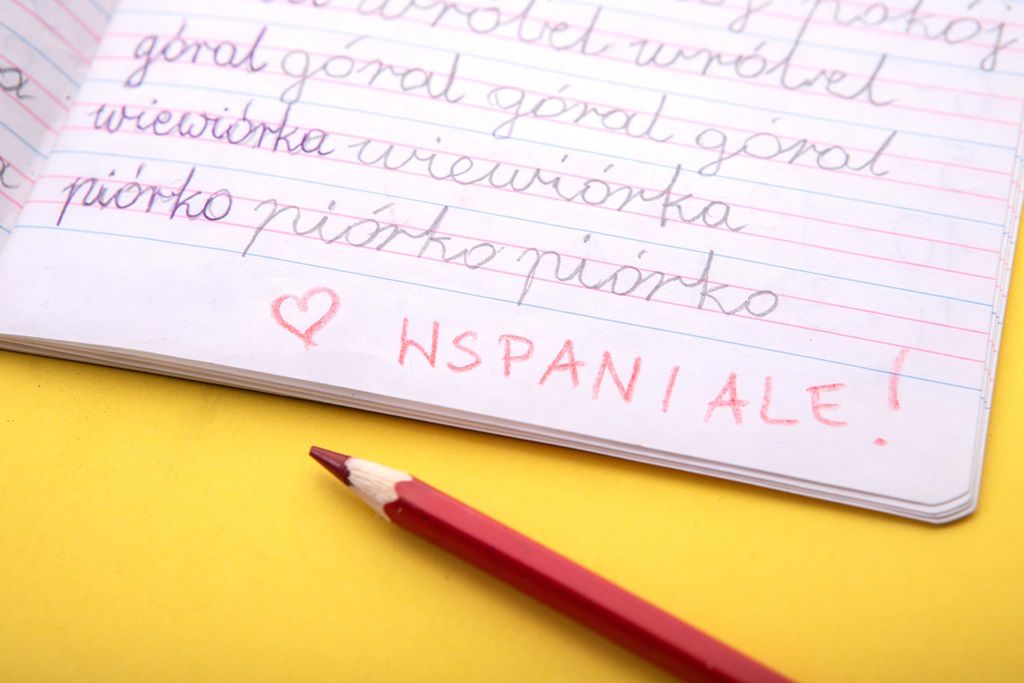 pokój
wróbel wróbel
góral góral góral góral
wiewiórka wiewiórka
piórko piórko piórko
WSPANIALE!